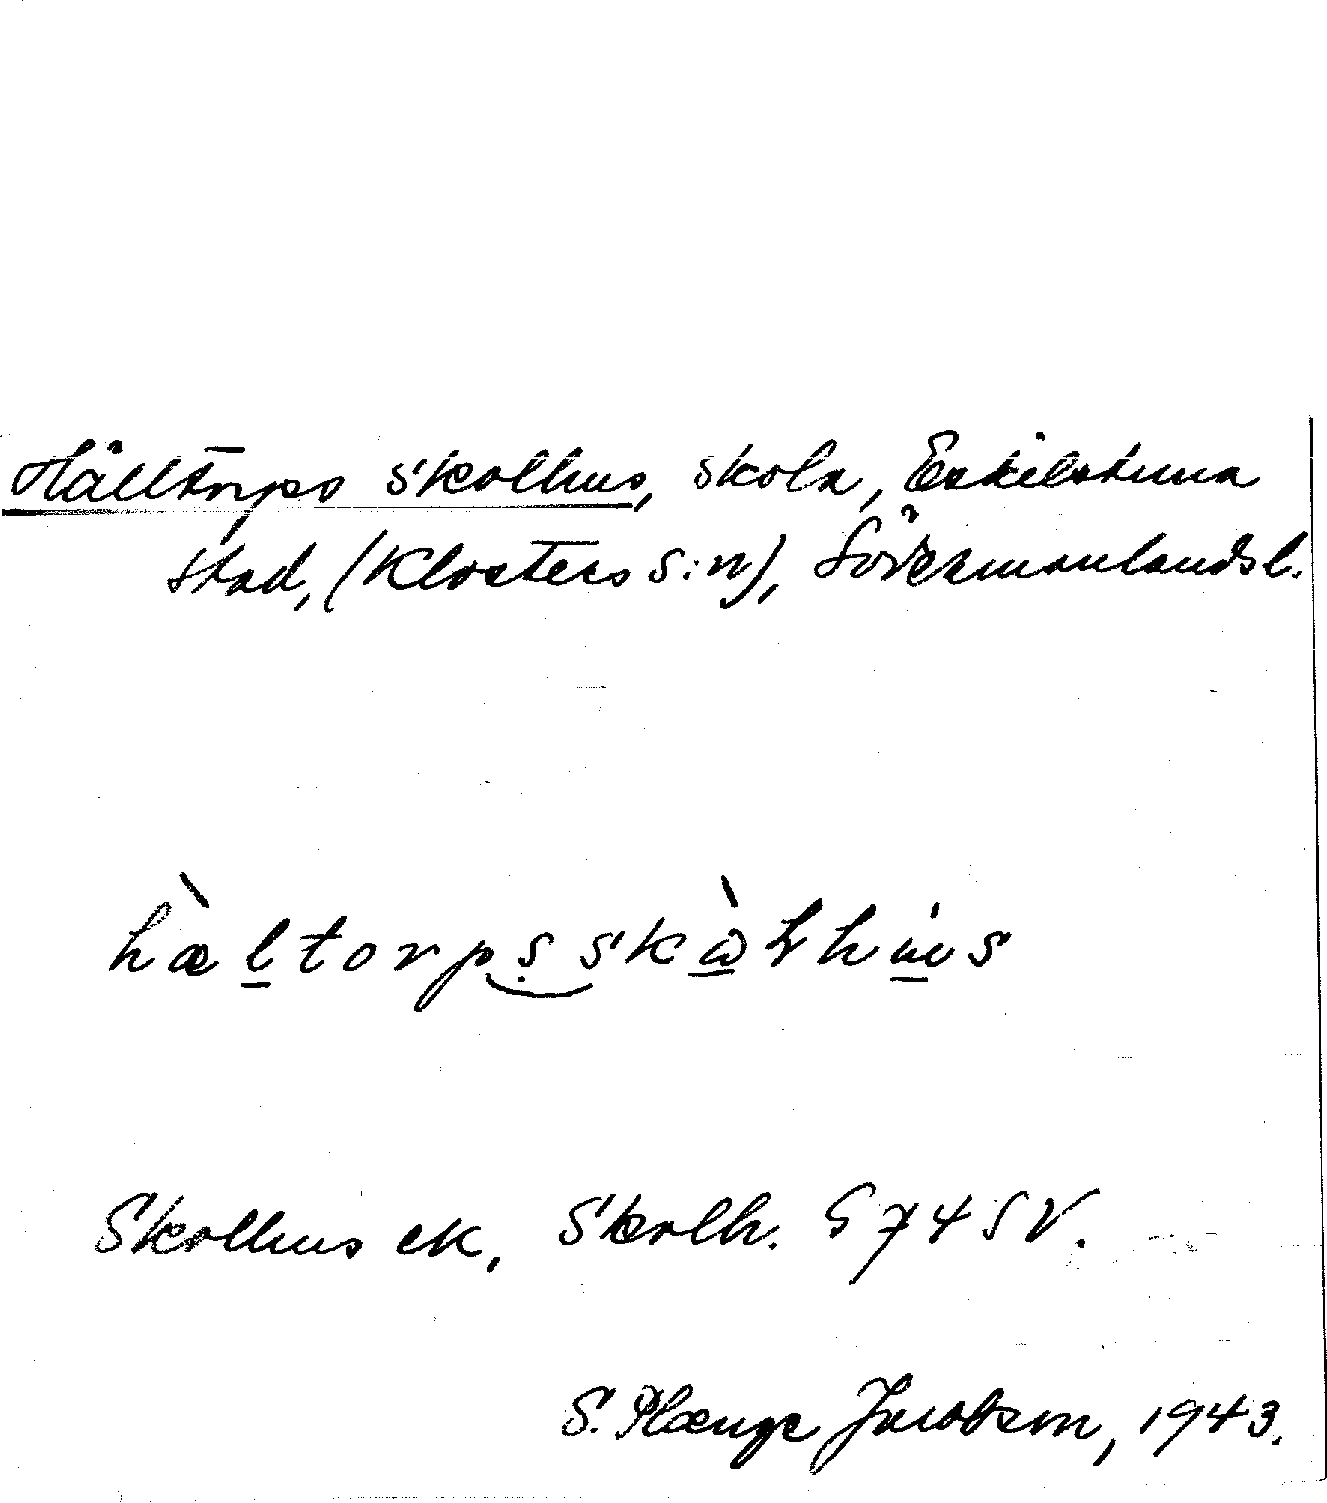 Hälltorps skolhus, skola, Eskilstuna
stad, (Klosters s:n), Södermanlands l.
hæ̀ltorpsskὼlhüs
Skolhus ek, Skolh. G 74 SV.
S. Plænge Jacobson, 1943.